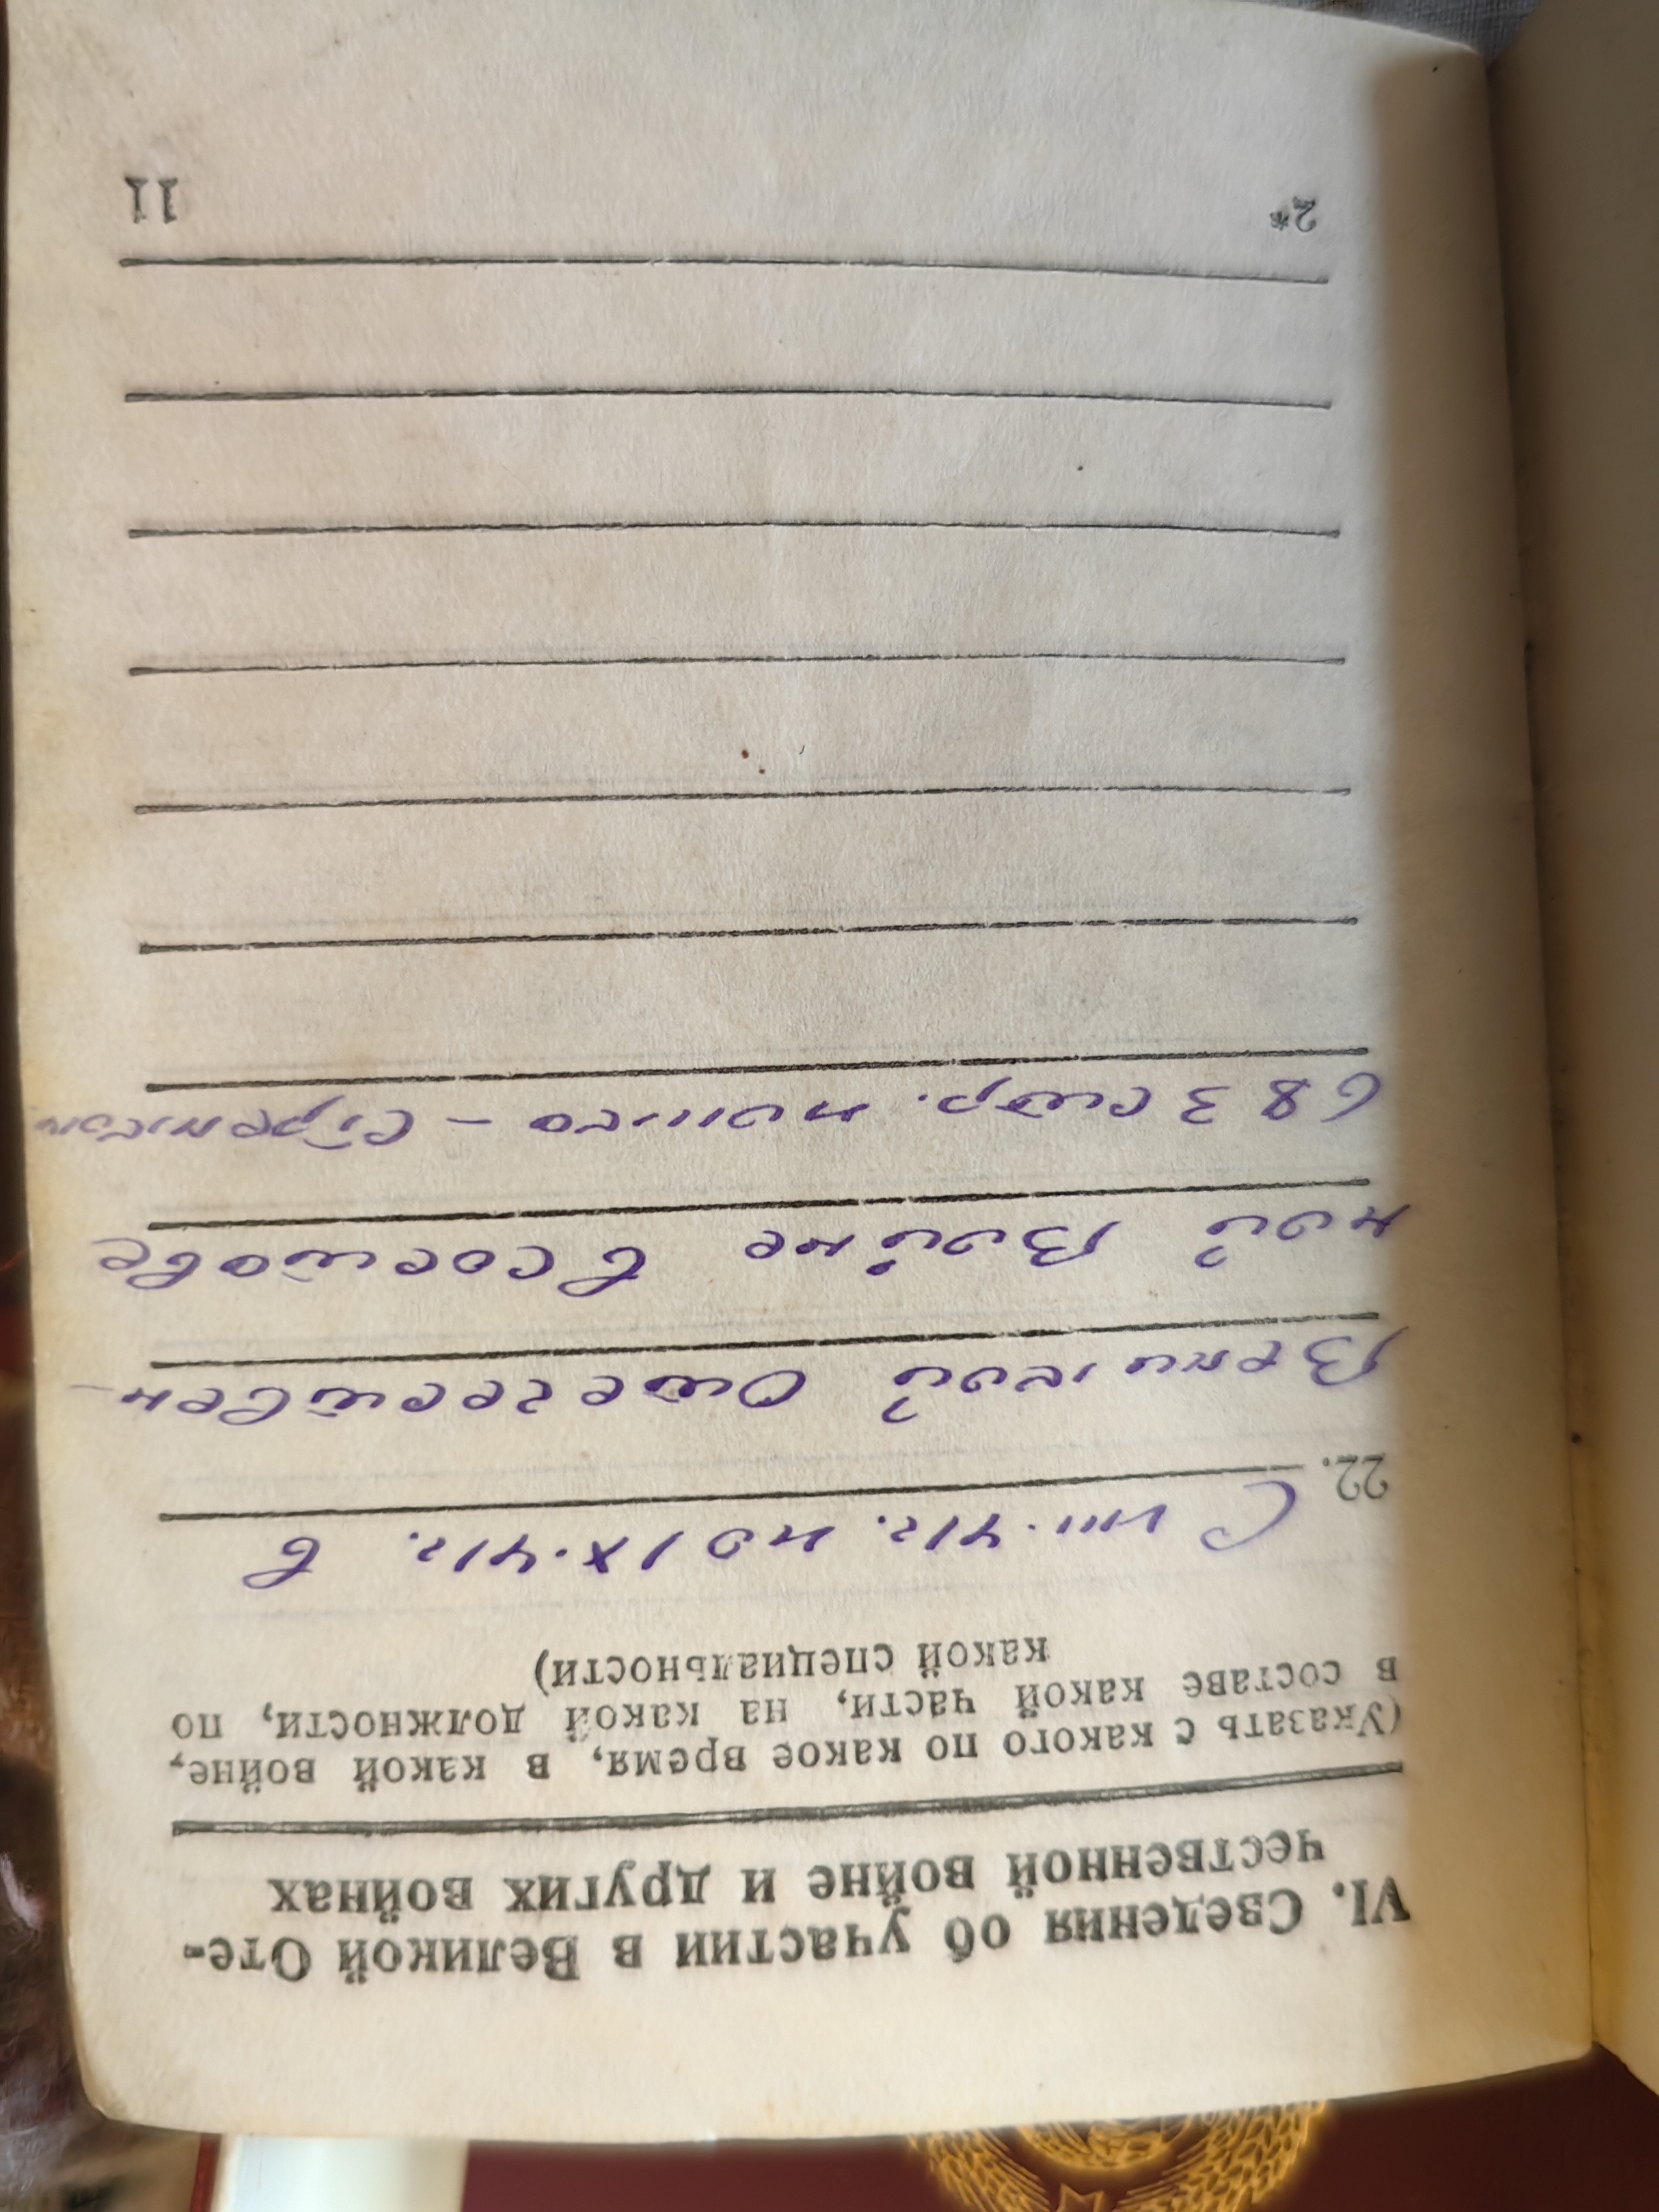 VI. Сведения об участии в Великой Оте-
чественной войне и других войнах
(Указать с какого по какое время, в какой войне,
в составе какой части, на какой должности, по
какой специальности)
22. С VIII.41г. по IX.41г. в
Великой Отечествен-
ной Войне в составе
683 стр. полка - стрелком
2*
11